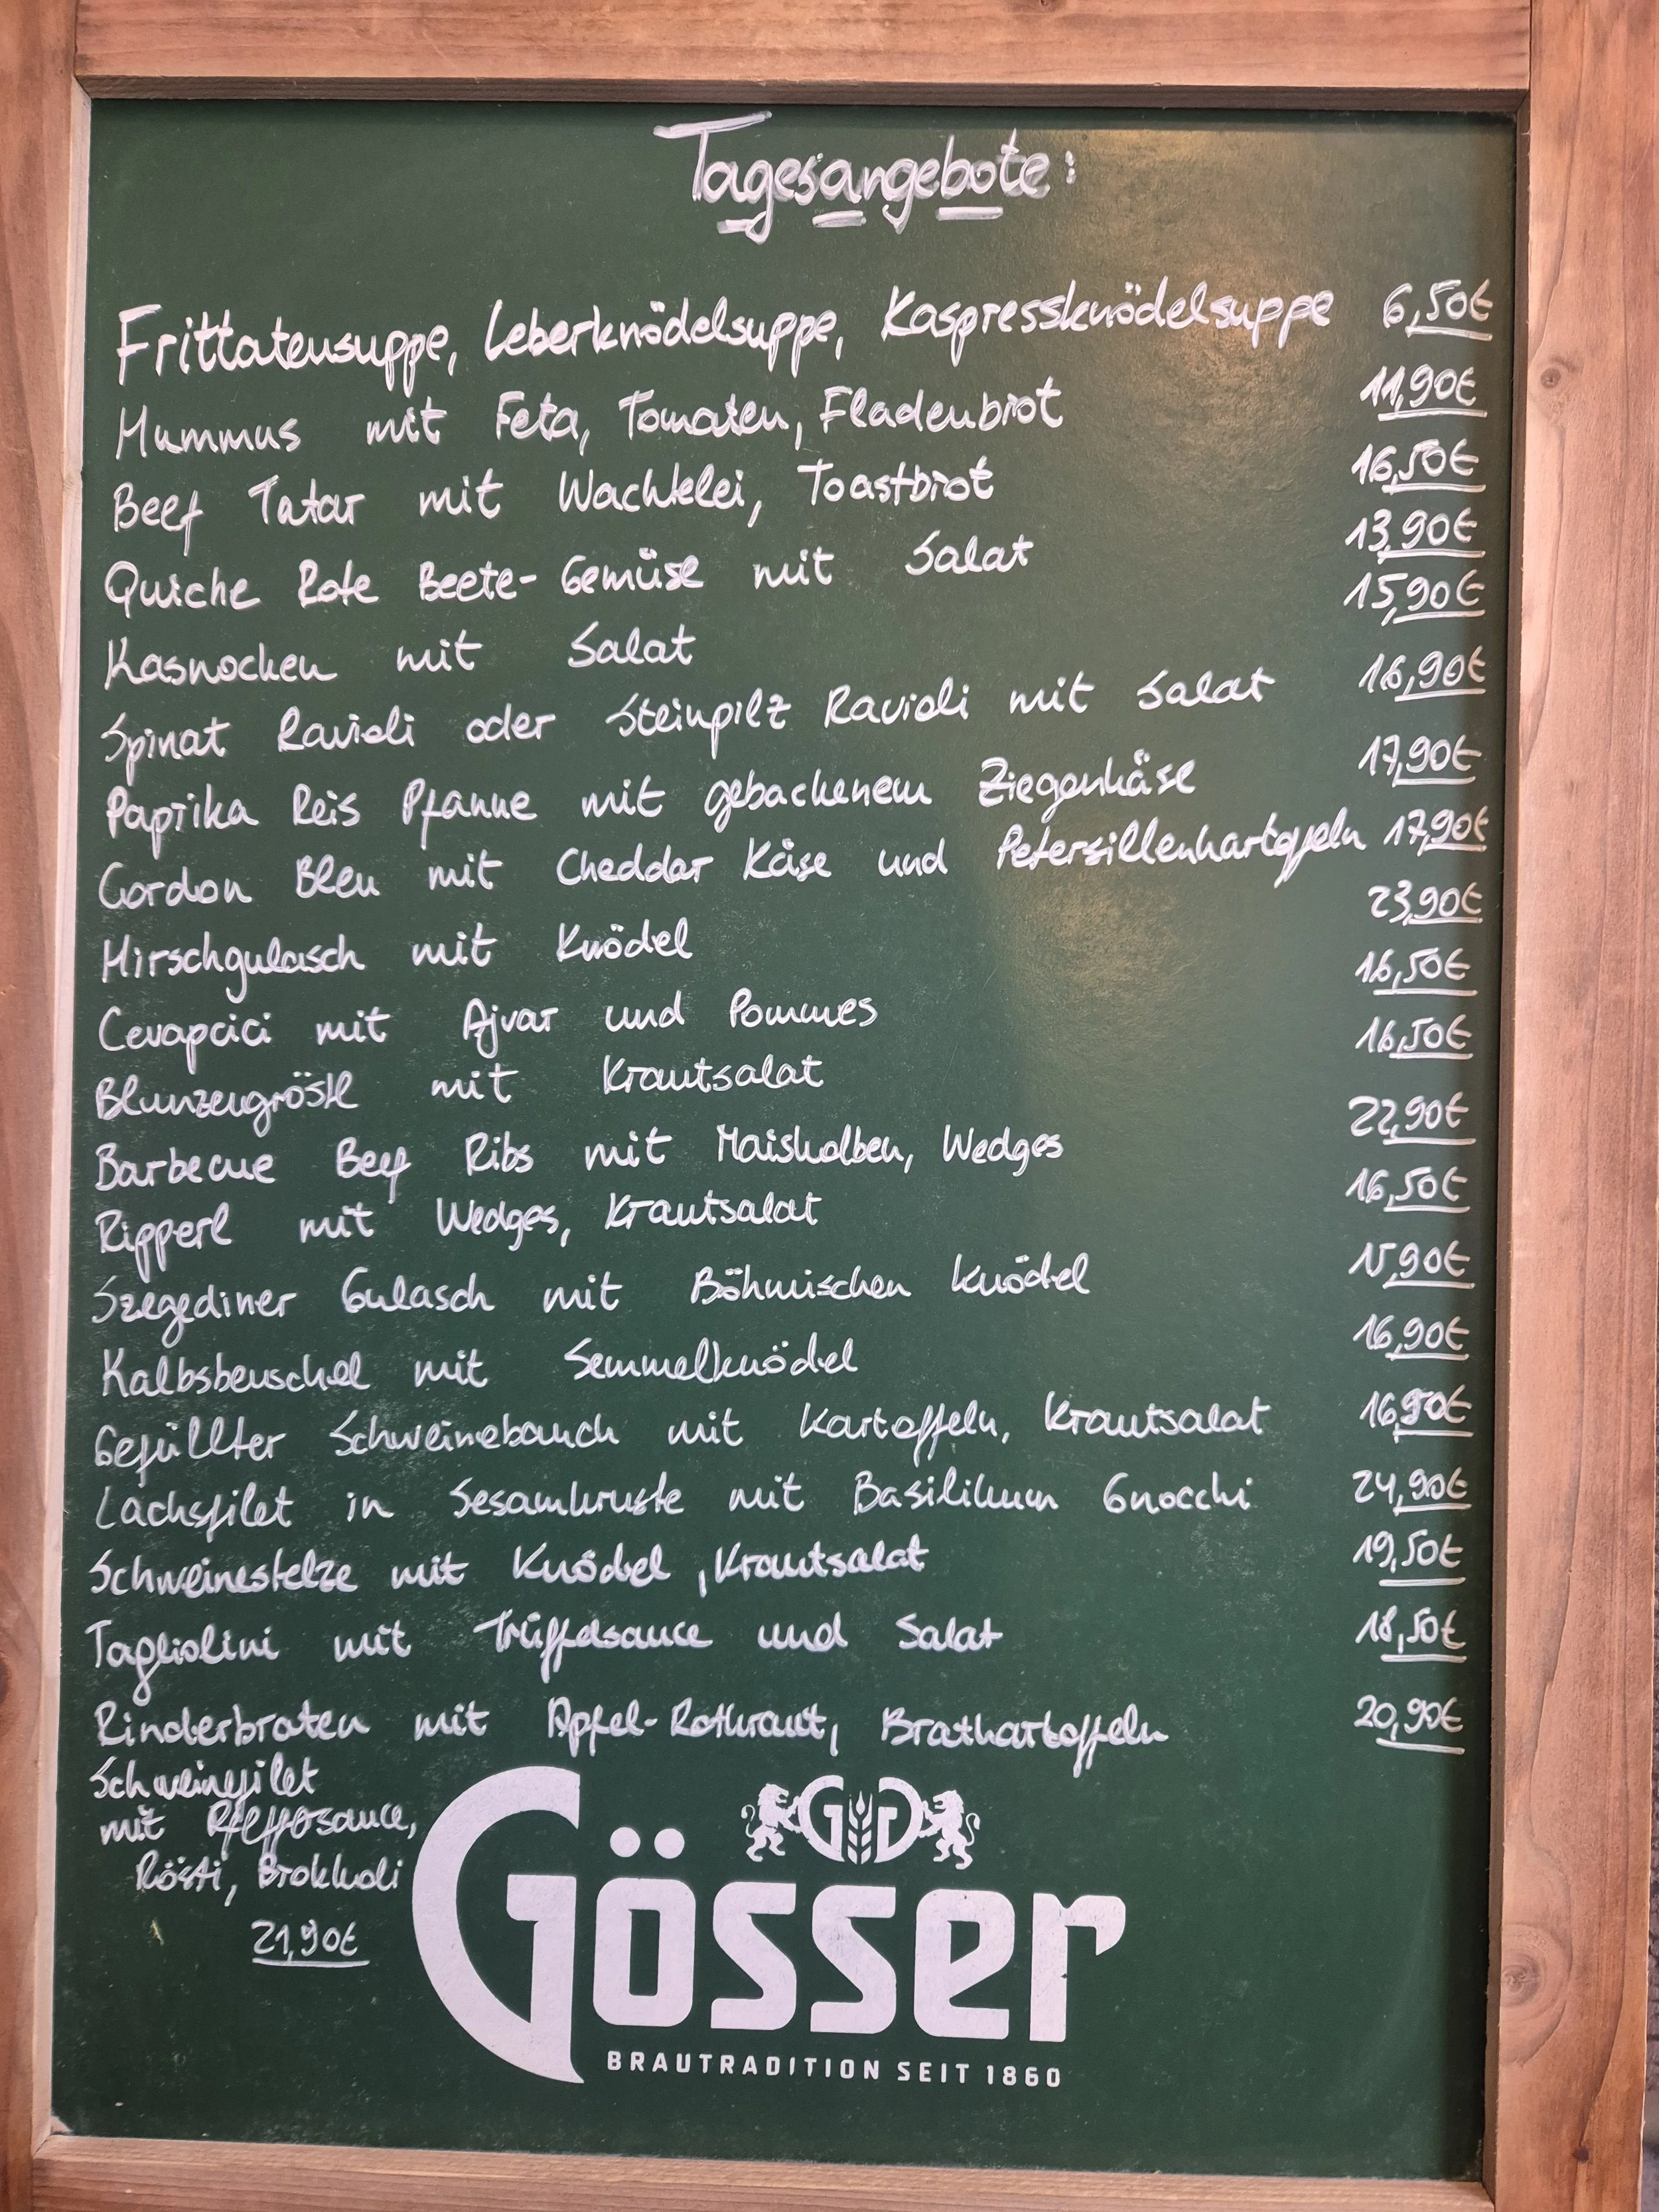 Tagesangebote:
Frittatensuppe, Leberknödelsuppe, Kaspressknödelsuppe 6,50€
Hummus mit Feta, Tomaten, Fladenbrot 11,90€
Beef Tatar mit Wachtelei, Toastbrot 16,50€
Quiche Rote Beete-Gemüse mit Salat 13,90€
Kasnocken mit Salat 15,90€
Spinat Ravioli oder Steinpilz Ravioli mit Salat 16,90€
Paprika Reis Pfanne mit gebackenem Ziegenkäse 17,90€
Cordon Bleu mit Cheddar Käse und Petersillenkartofeln 17,90€
Hirschgulasch mit Knödel 23,90€
Cevapcici mit Ajvar und Pommes 16,50€
Blunzengröstl mit Krautsalat 16,50€
Barbecue Beef Ribs mit Maiskolben, Wedges 22,90€
Ripperl mit Wedges, Krautsalat 16,50€
Szegediner Gulasch mit Böhmischen Knödel 15,90€
Kalbsbeuschel mit Semmelknödel 16,90€
Gefüllter Schweinebauch mit Kartoffeln, Krautsalat 16,90€
Lachsfilet in Sesamkruste mit Basilikum Gnocchi 24,90€
Schweinestelze mit Knödel, Krautsalat 19,50€
Tagliolini mit Trüffelsauce und Salat 18,50€
Rinderbraten mit Apfel-Rotkraut, Bratkartoffeln 20,90€
Schweinefilet
mit Pfeffersauce,
Rösti, Brokkoli
21,90€
GG
Gösser
BRAUTRADITION SEIT 1860